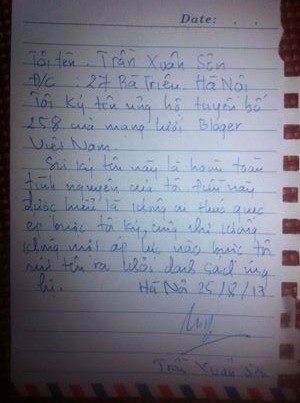 Date: . .
Tôi tên : Trần Xuân Sơn
Đ/C : 27 Bà Triệu Hà Nội
Tôi ký tên ủng hộ tuyên bố
258 của mạng lưới Bloger
Việt Nam.
Sự ký tên này là hoàn toàn
tình nguyện của tôi điều này
được hiểu là không ai thúc giục
ép buộc tôi ký, cũng như không
không một áp lực nào buộc tôi
rút tên ra khỏi danh sách ủng
hộ. Hà Nội 25/8/13
Trần Xuân Sơn